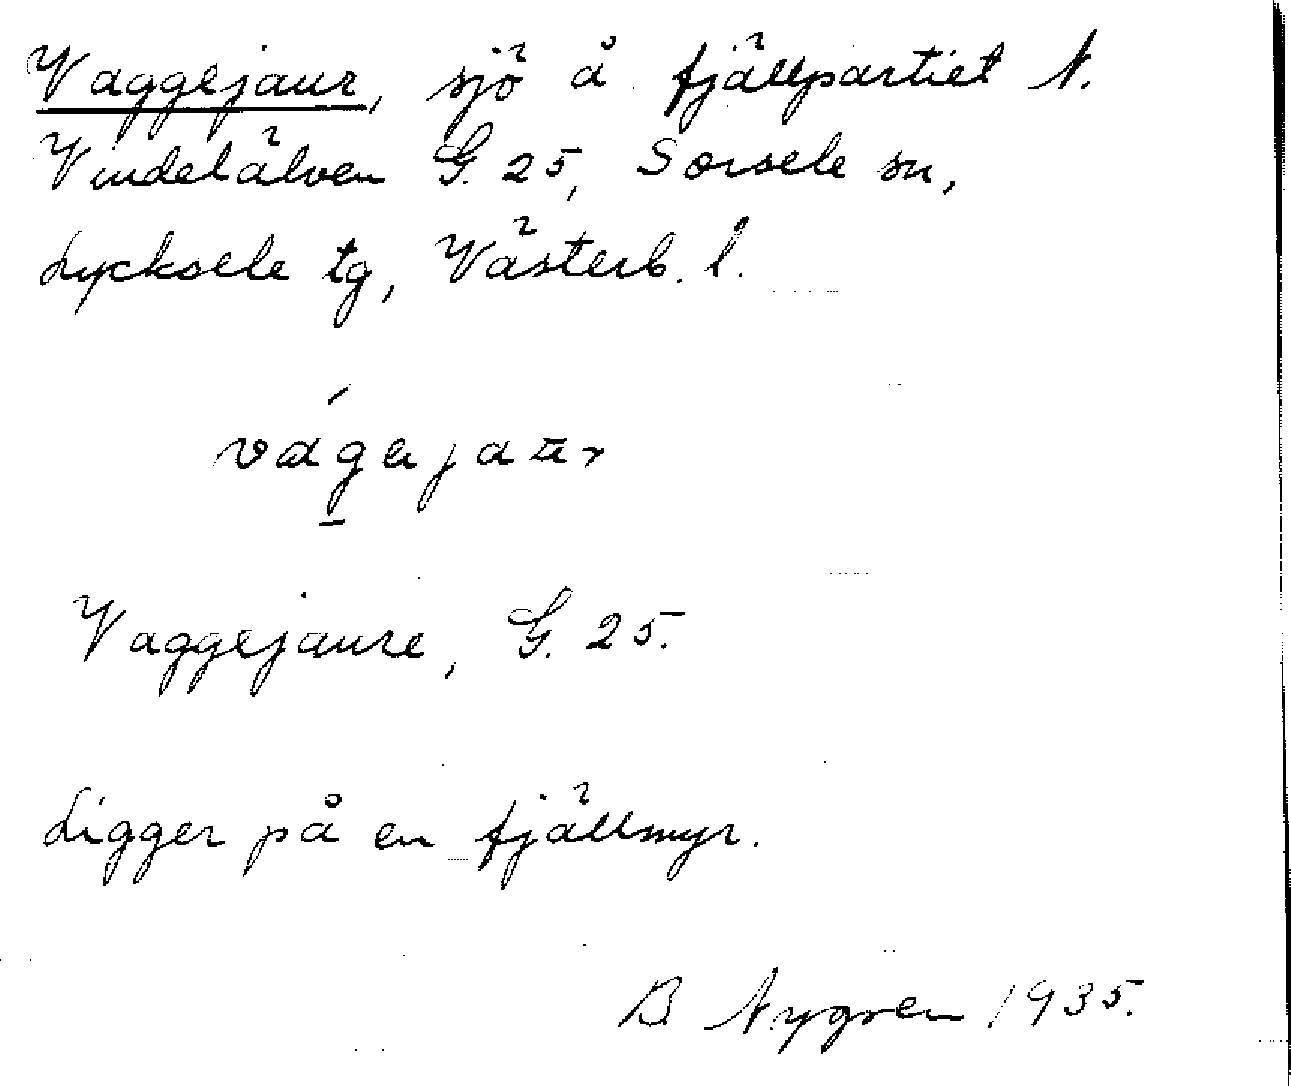 Vaggejaur, sjö å fjällpartiet N.
Vindelälven G. 25, Sorsele sn,
Lycksele tg, Västerb. l.
vágejaur
Vaggejaure, G. 25.
Ligger på en fjällmyr.
B. Nygren 1935.